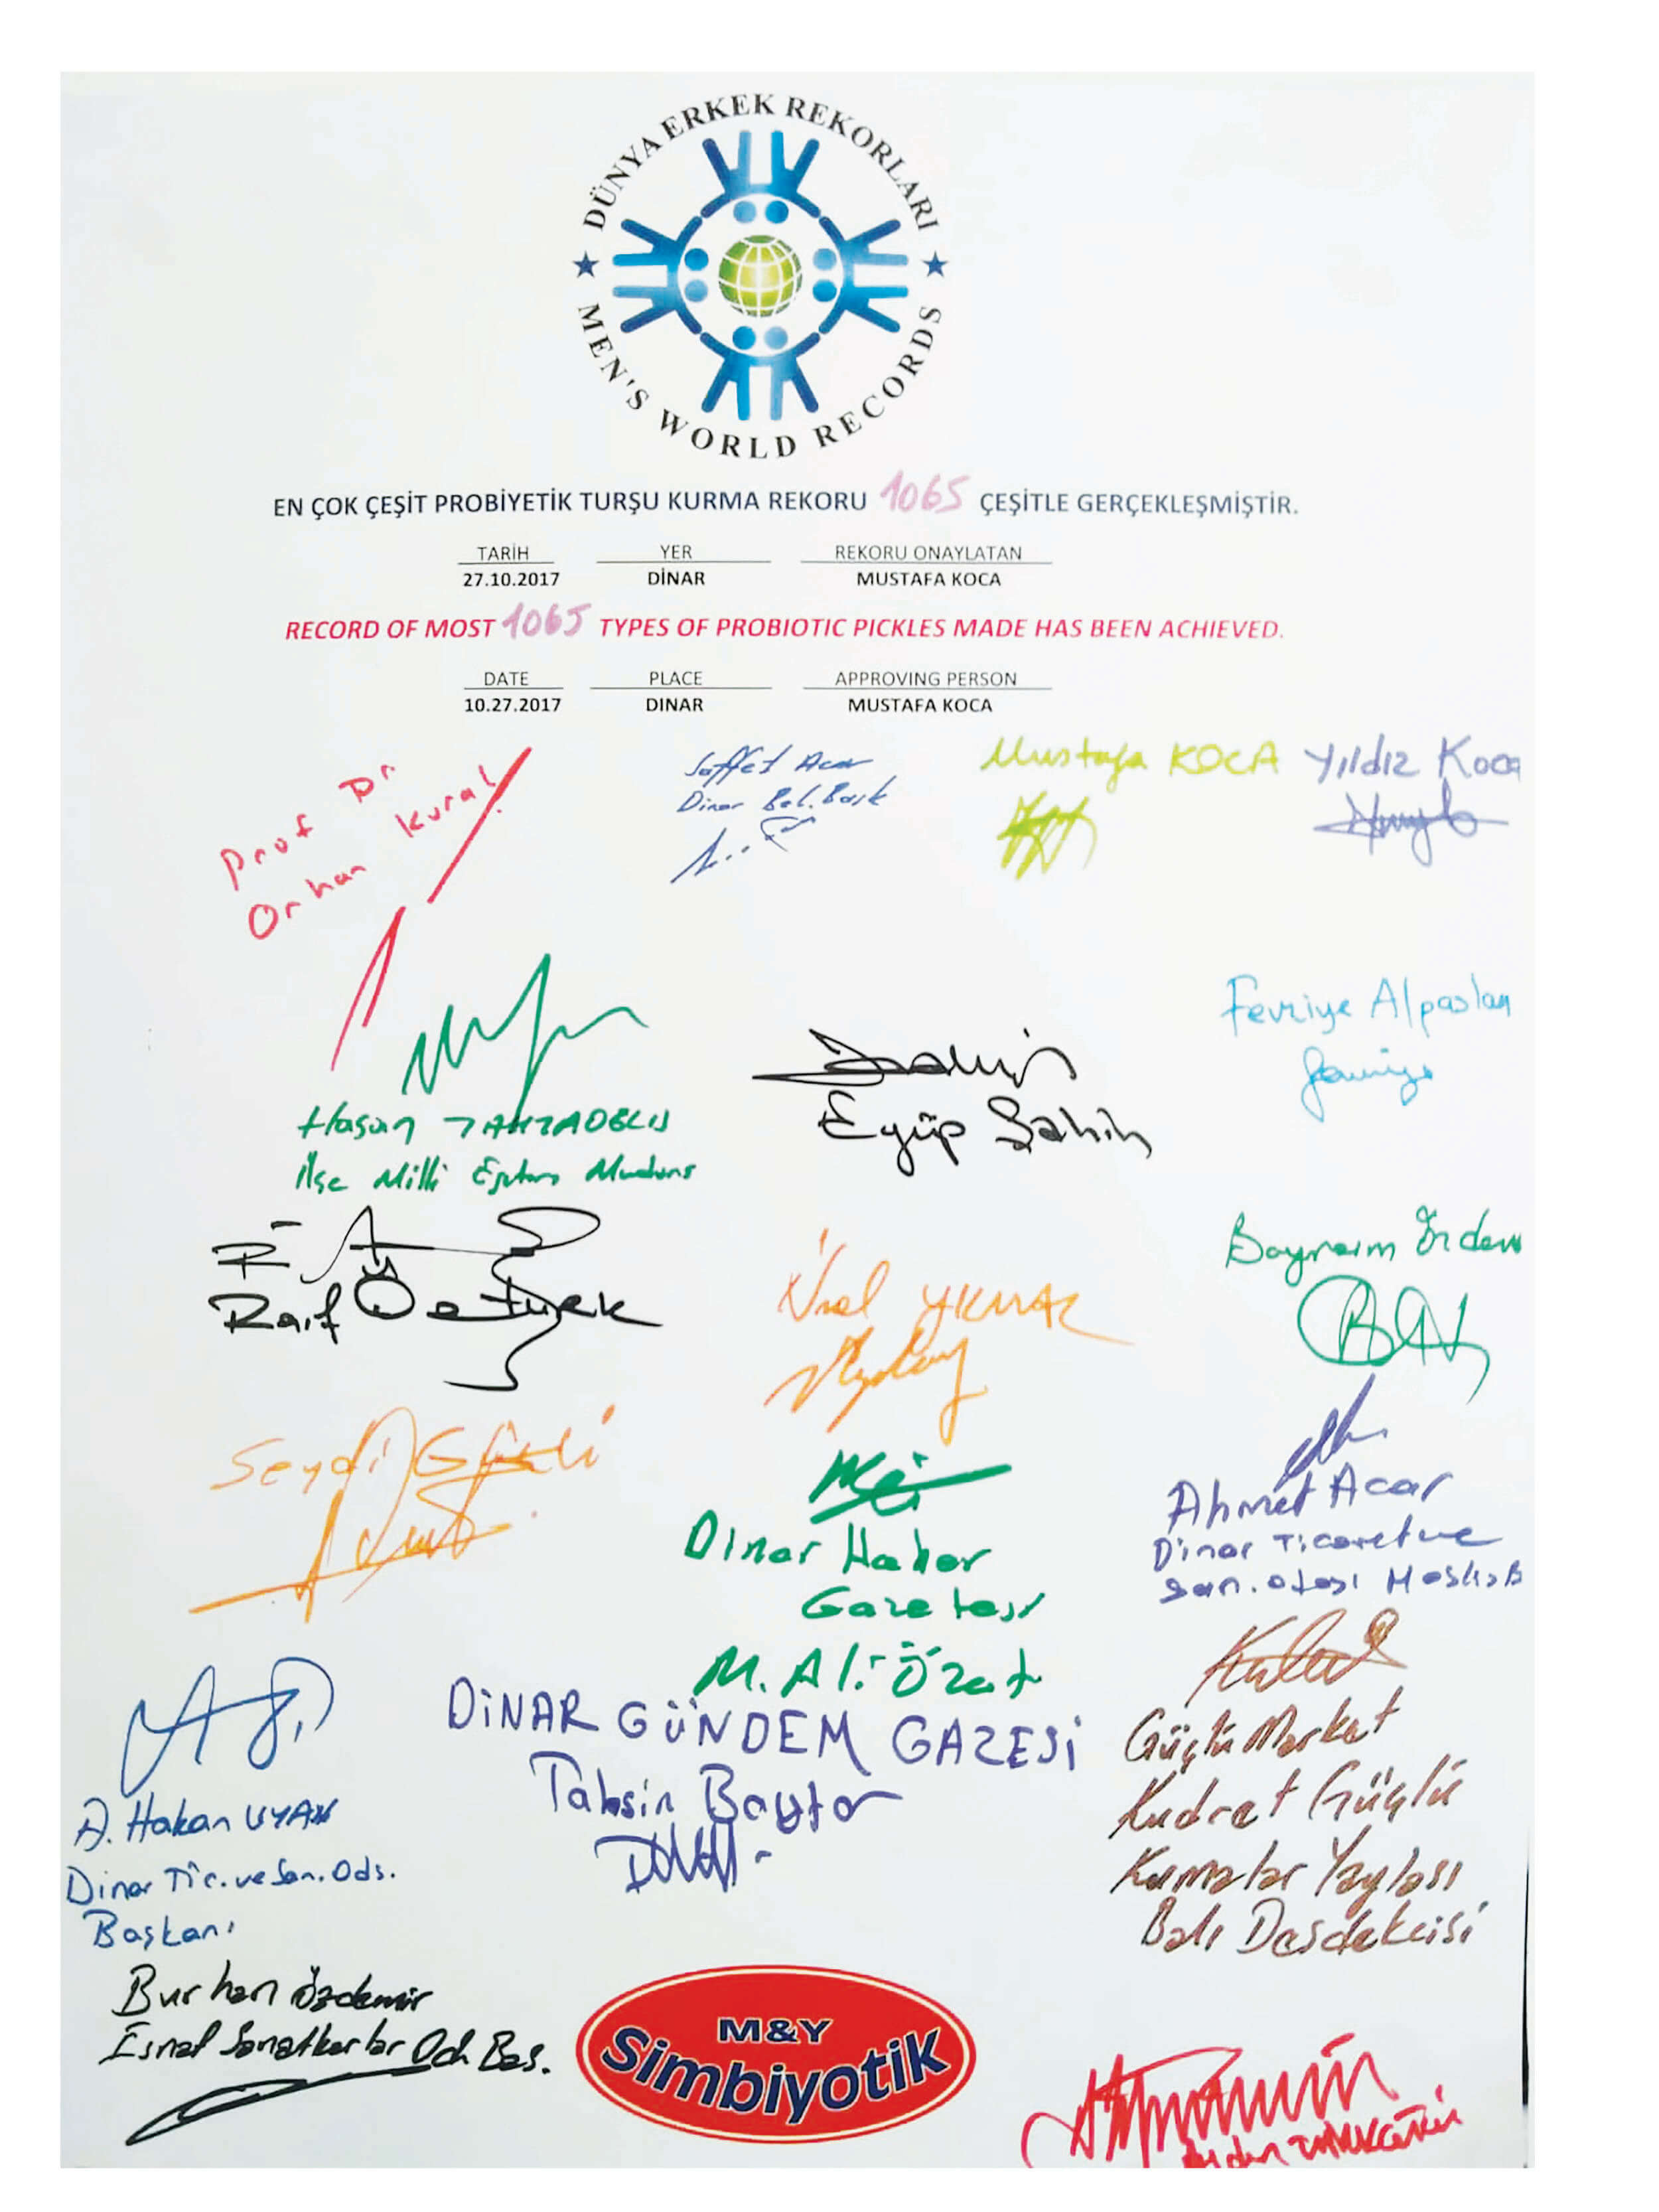 DÜNYA ERKEK REKORLARI
MEN'S WORLD RECORDS
EN ÇOK ÇEŞİT PROBİYETİK TURŞU KURMA REKORU 1065 ÇEŞİTLE GERÇEKLEŞMİŞTİR.
TARİH YER REKORU ONAYLATAN
27.10.2017 DİNAR MUSTAFA KOCA
RECORD OF MOST 1065 TYPES OF PROBIOTIC PICKLES MADE HAS BEEN ACHIEVED.
DATE PLACE APPROVING PERSON
10.27.2017 DINAR MUSTAFA KOCA
Prof Dr
Orhan Kural
Saffet Acar
Dinar Bel. Başk
Mustafa KOCA
Yıldız Koca
Fevziye Alpaslan
Hasan
İlçe Milli Eğitim Müdürü
Eyüp Şahin
Raif Öztürk
Bayram Erdem
Seydi
Dinar Haber
Gazetesi
M. Ali Özat
Ahmet Acar
Dinar Ticaret ve
San. odası
DİNAR GÜNDEM GAZESİ
Tahsin Baytar
Güçlü Market
Kudret Güçlü
Kumalar Yaylası
Balı Desdekcisi
A. Hakan UYAN
Dinar Tic. ve San. Ods.
Başkanı
Burhan Özdemir
Esnaf Sanatkarlar Od. Baş.
M&Y
Simbiyotik